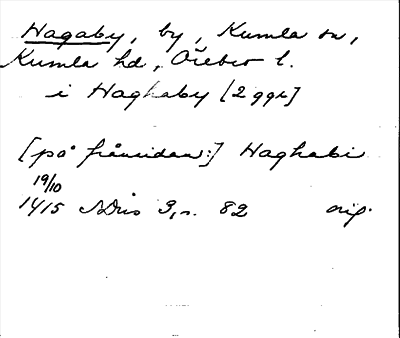 Hagaby, by, Kumla sn,
Kumla hd, Örebro l.
i Haghaby [2 ggr]
[på frånsidan:] Haghabi
19/10
1415 SDns 3, s. 82 orig.